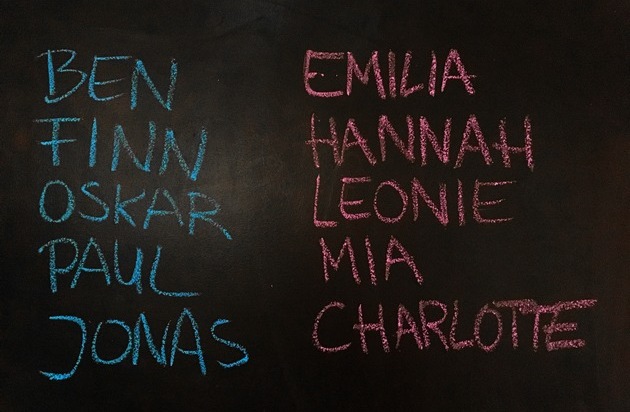 BEN
FINN
OSKAR
PAUL
JONAS
EMILIA
HANNAH
LEONIE
MIA
CHARLOTTE